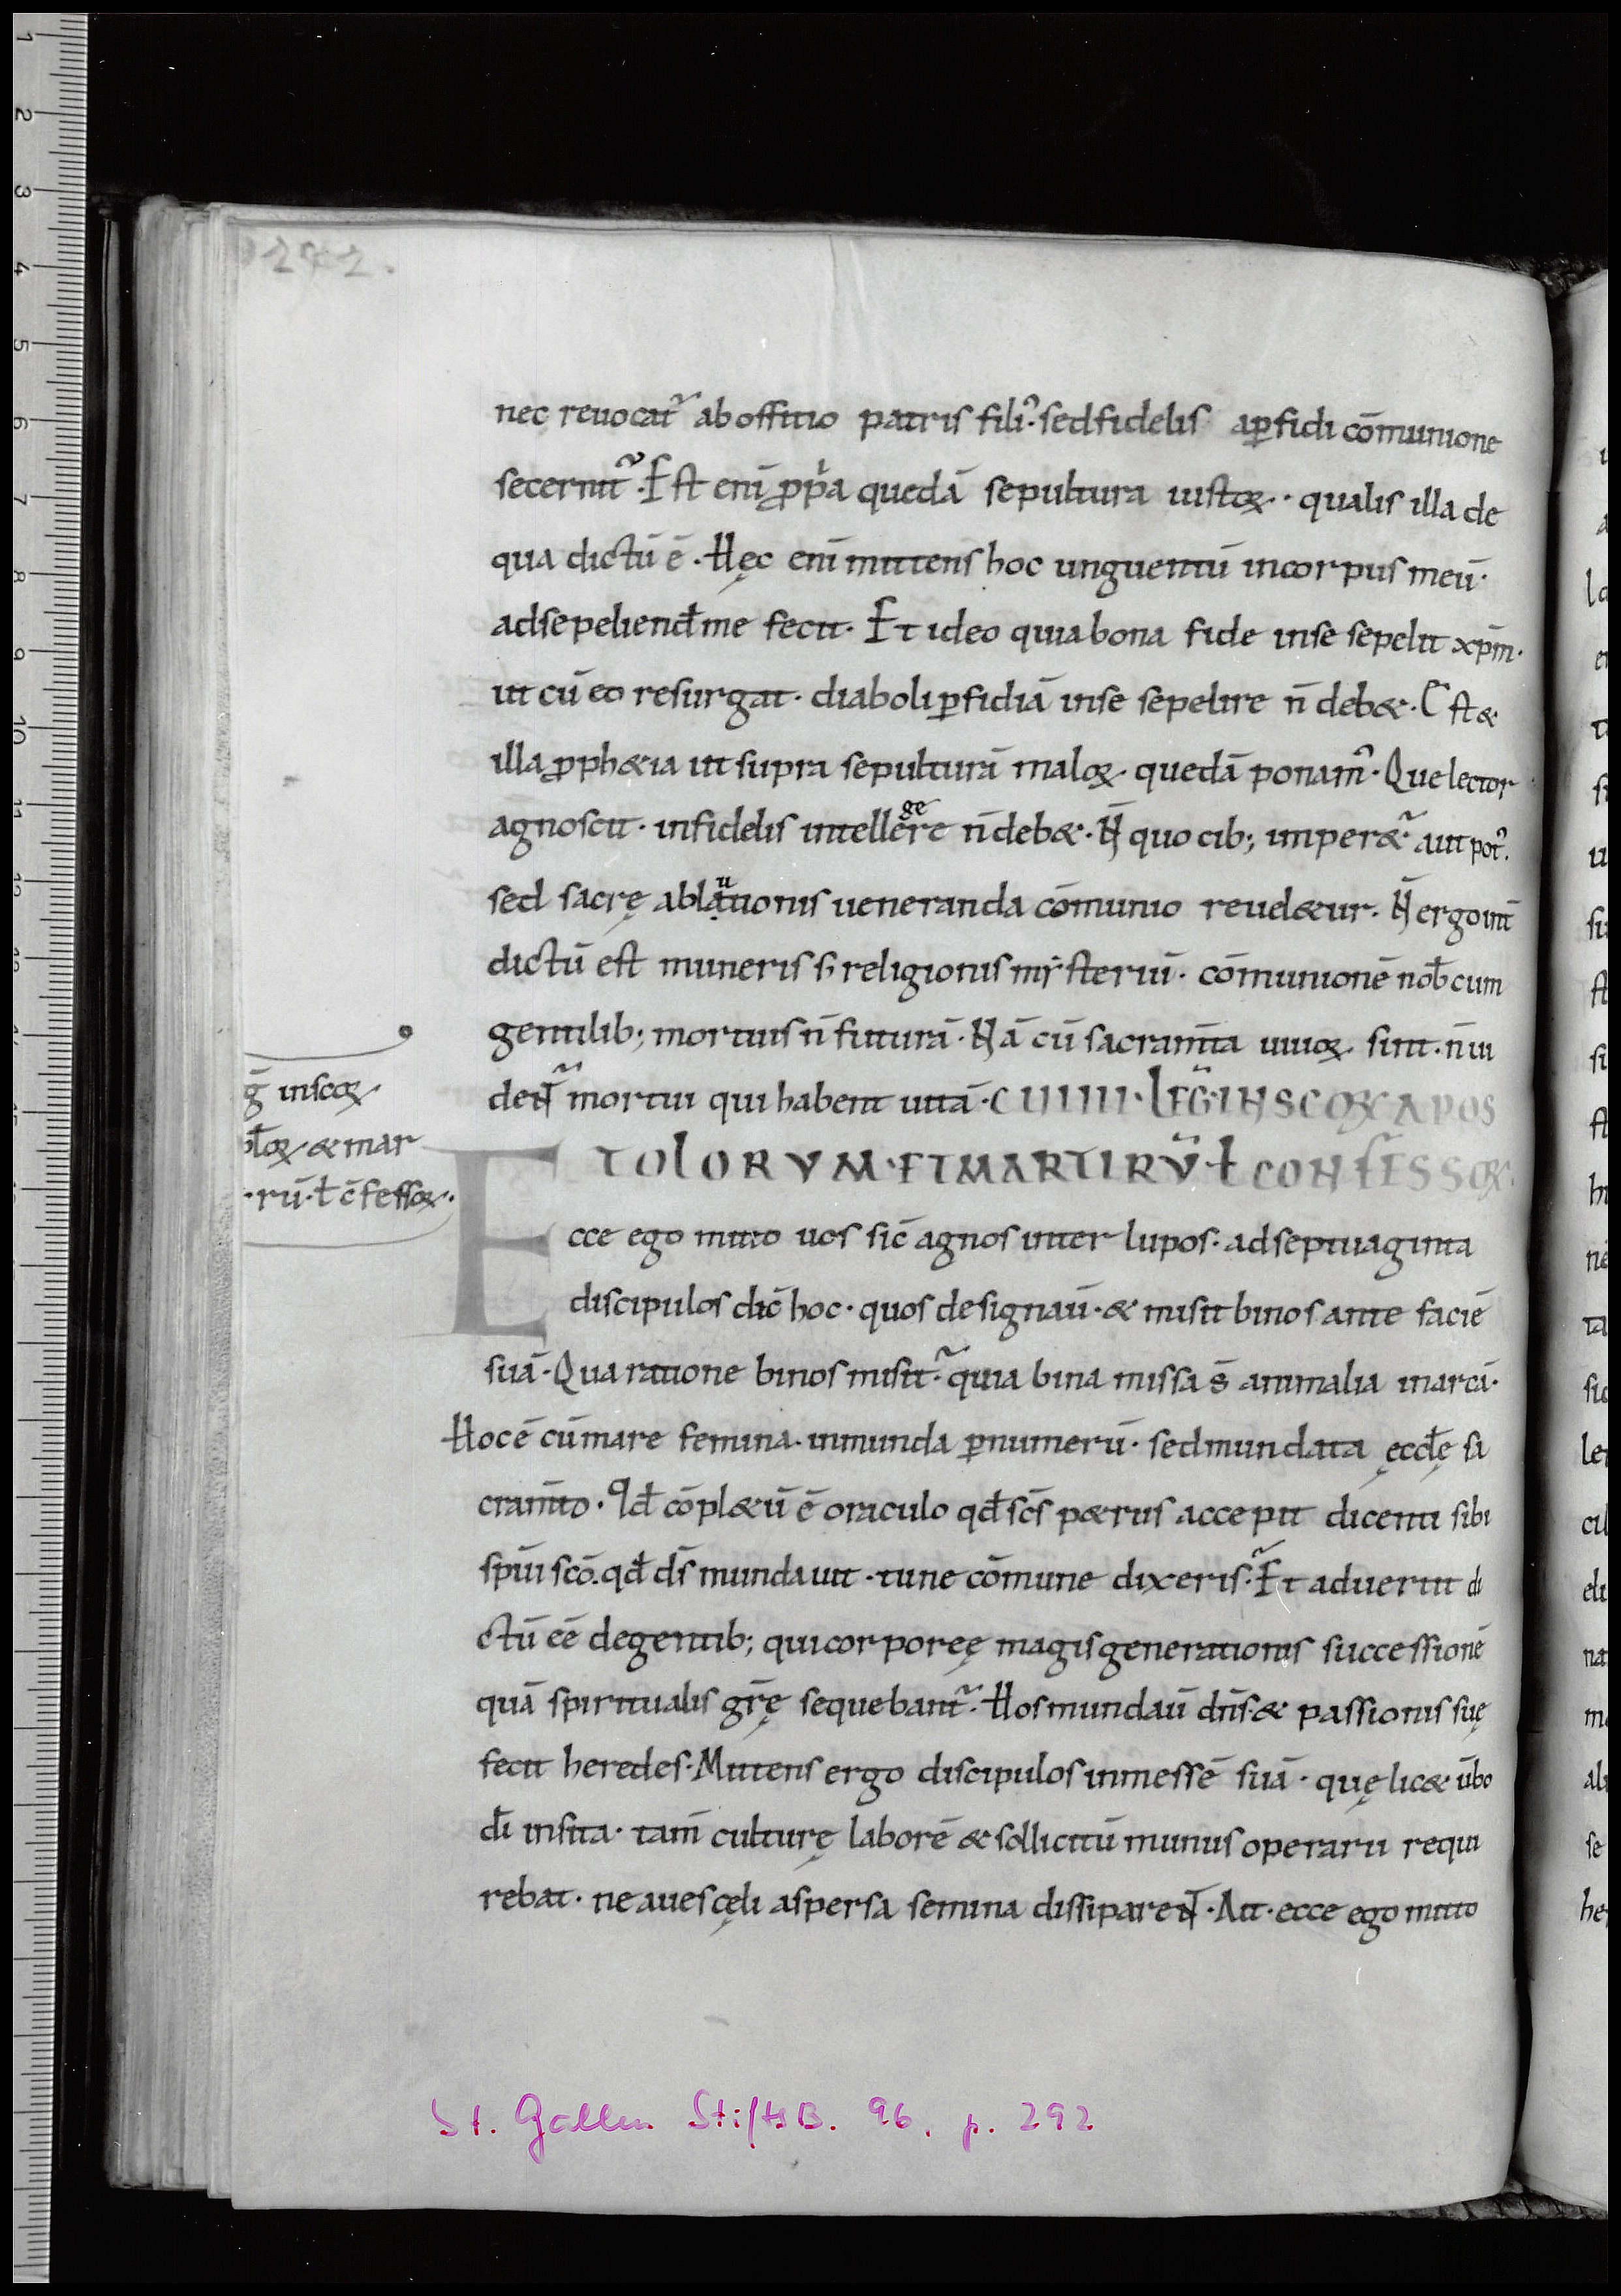 292.
nec reuocat᷑ ab offitio patris fili᾽· sed fidelis a ꝑfidi cōmunione
secernit᷑· Est enī ꝓpͥa quedā sepultura iustoꝝ·· qualis illa de
qua dictū ē· Hęc enī mittens hoc unguentū in corpus meū·
ad sepeliend̄ me fecit· Et ideo quia bona fide in se sepelit xp̄m·
ut cū eo resurgat· diaboli ꝑfidiā in se sepelire n̄ deb&· Est &
illa ꝓph&ia ut supra sepulturā maloꝝ· quedā ponam᾽· Que lector
agnoscit· infidelis intellegere n̄ deb&· N̄ quo cib; imper&᷑ aut pot᾽·
sed sacrę ablautionis ueneranda cōmunio reuel&ur· N̄ ergo int̄
dictū est muneris s; religionis mẏsteriū· cōmunionē nob̄ cum
gentilib; mortuis n̄ futurā· Nā cū sacram̄ta uiuoꝝ sint· n̄ ui
dent᷑ mortui qui habent uitā· CUIIIII· LEG̅· IN SCOꝜ APOS
TOLORVM· ET MARTIRV̄· Ɫ CONFESSOꝜ·
g̅ in scoꝝ
pl̄oꝝ & mar
·rū· ł c̄fessoꝝ·
Ecce ego mitto uos sic̄ agnos inter lupos· ad septuaginta
discipulos dic̄ hoc· quos designau̅· & misit binos ante faciē
suā· Qua ratione binos misit᷑· quia bina missa s̄ animalia in arcā·
Hoc ē cū mare femina· inmunda ꝑ numerū· sed mundata ęccl̄ę sa
cram̄to· Qd̄ cōpl&ū ē oraculo qd̄ sc̄s p&rus accepit dicenti sibi
spiu̅ scō· qd̄ d̄s mundauit· tu ne cōmune dixeris᷑· Et aduertit di
ctū eē de gentib; qui corporeę magis generationis successionē
quā spiritualis gr̄ę sequebant᷑· Hos mundau̅ dn̄s· & passionis suę
fecit heredes· Mittens ergo discipulos in messē suā· quę lic& ūbo
d̄i insita· tam̄ culturę laborē & sollicitū munus operarii requi
rebat· ne aues cęli aspersa semina dissiparent· Ait· ecce ego mitto
St. Gallen StiftsB. 96, p. 292